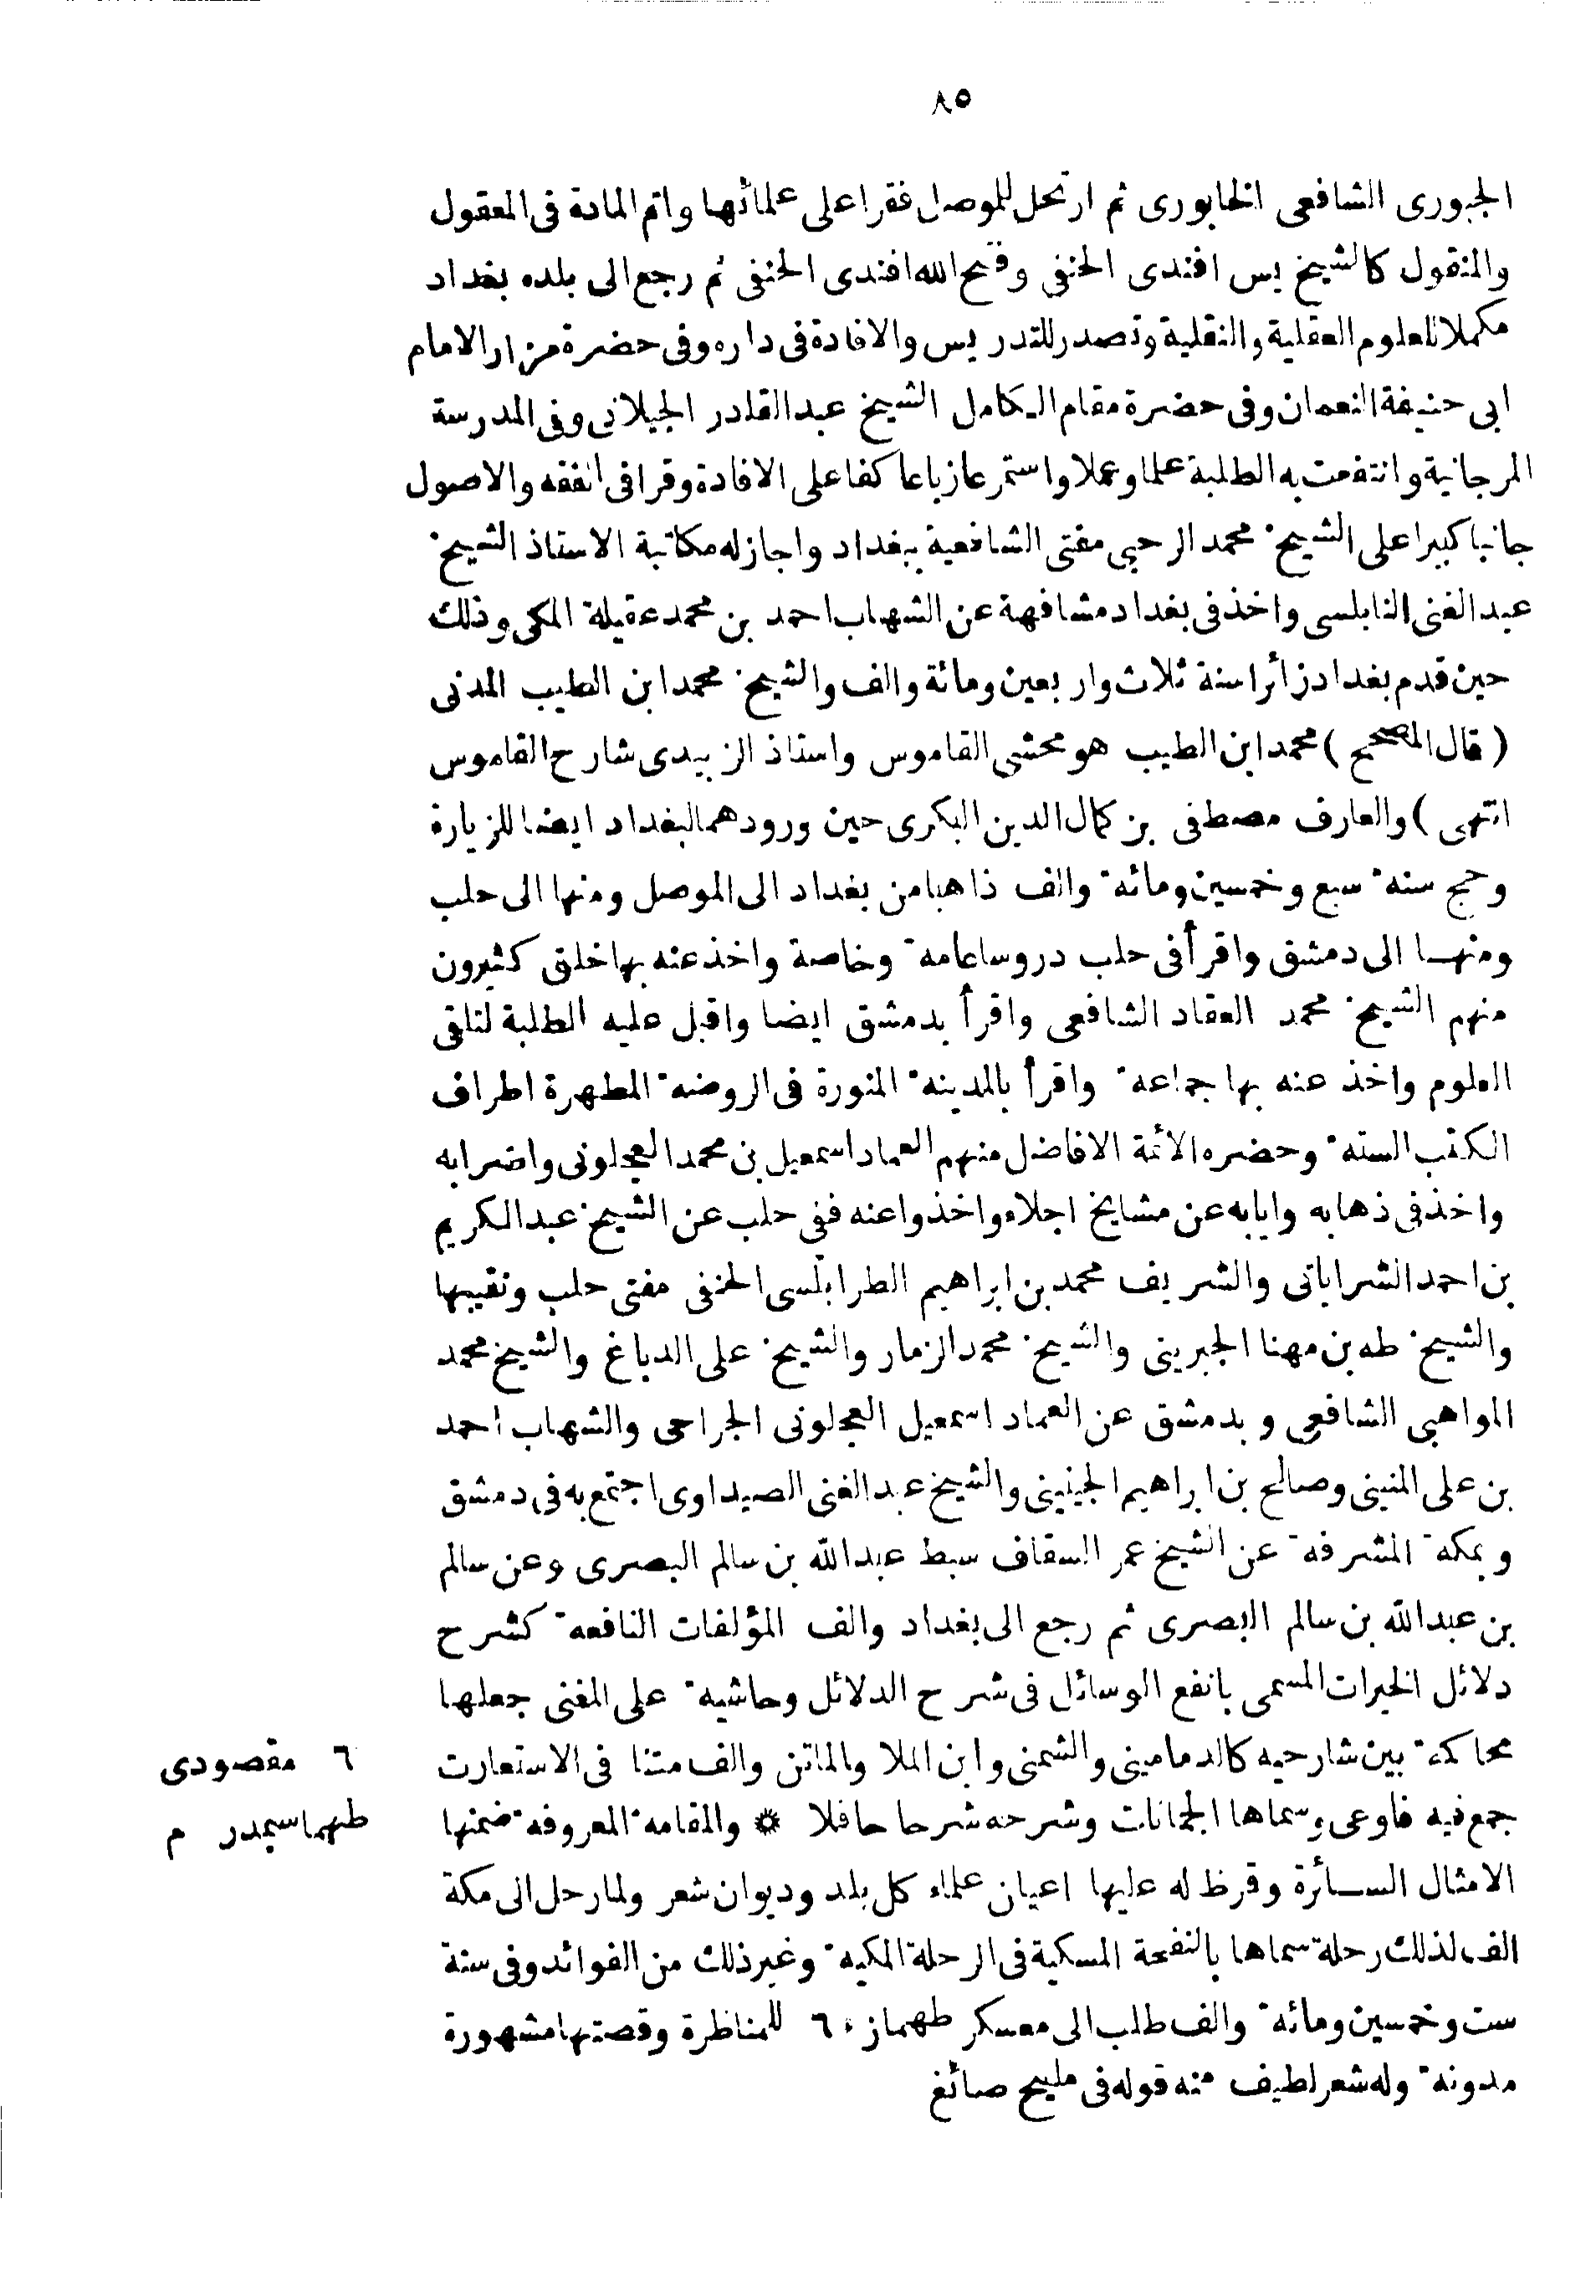 ٨٥
الجبورى الشافعى الخابورى ثم ارتحل للموصل فقرا على علمائها واتم المادة فى المعقول
والمنقول كالشيخ يس افندى الحنفى وفتح الله افندى الحنفى ثم رجع الى بلده بغداد
مكملا للعلوم العقلية والنقلية وتصدر للتدريس والافادة فى داره وفى حضرة مزار الامام
ابى حنيفة النعمان وفى حضرة مقام الكامل الشيخ عبد القادر الجيلانى وفى المدرسة
المرجانية وانتفعت به الطلبة علما وعملا واستمر عازبا عاكفا على الافادة وقرا فى الفقه والاصول
جانبا كبيرا على الشيخ محمد الرحبى مفتى الشافعية ببغداد واجاز له مكاتبة الاستاذ الشيخ
عبد الغنى النابلسى واخذ فى بغداد مشافهة عن الشهاب احمد بن محمد عقيلة المكى وذلك
حين قدم بغداد زائرا سنة ثلاث واربعين ومائة والف والشيخ محمد ابن الطيب المدنى
( قال المصحح ) محمد ابن الطيب هو محشى القاموس واستاذ الزبيدى شارح القاموس
انتهى ) والعارف مصطفى بن كمال الدين البكرى حين ورودهما لبغداد ايضا للزيارة
وحج سنة سبع وخمسين ومائة والف ذاهبا من بغداد الى الموصل ومنها الى حلب
ومنها الى دمشق واقرأ فى حلب دروسا عامة وخاصة واخذ عنه بها خلق كثيرون
منهم الشيخ محمد العقاد الشافعى واقرأ بدمشق ايضا واقبل عليه الطلبة لتلقى
العلوم واخذ عنه بها جماعة واقرأ بالمدينة المنورة فى الروضة المطهرة اطراف
الكتب الستة وحضره الأئمة الافاضل منهم العماد اسمعيل بن محمد العجلونى واضرابه
واخذ فى ذهابه وايابه عن مشايخ اجلاء واخذوا عنه ففى حلب عن الشيخ عبد الكريم
بن احمد الشراباتى والشريف محمد بن ابراهيم الطرابلسى الحنفى مفتى حلب ونقيبها
والشيخ طه بن مهنا الجبرينى والشيخ محمد الزمار والشيخ على الدباغ والشيخ محمد
المواهبى الشافعى وبدمشق عن العماد اسمعيل العجلونى الجراحى والشهاب احمد
بن على المنينى وصالح بن ابراهيم الجينينى والشيخ عبد الغنى الصيداوى اجتمع به فى دمشق
وبمكة المشرفة عن الشيخ عمر السقاف سبط عبد الله بن سالم البصرى وعن سالم
بن عبد الله بن سالم البصرى ثم رجع الى بغداد والف المؤلفات النافعة كشرح
دلائل الخيرات المسمى بانفع الوسائل فى شرح الدلائل وحاشية على المغنى جعلها
محاكمة بين شارحيه كالدمامينى والشمنى وابن الملا والماتن والف متنا فى الاستعارت
جمع فيه فاوعى وسماها الجمانات وشرحه شرحا حافلا ❊ والمقامة المعروفة ضمنها
الامثال السائرة وقرظ له عليها اعيان علماء كل بلد وديوان شعر ولما رحل الى مكة
الف لذلك رحلة سماها بالنفحة المسكية فى الرحلة المكية وغير ذلك من الفوائد وفى سنة
ست وخمسين ومائة والف طلب الى معسكر طهماز ٦ للمناظرة وقصتها مشهورة
مدونة وله شعر لطيف منه قوله فى مليح صائغ
٦ مقصودى
طهماسبدر م